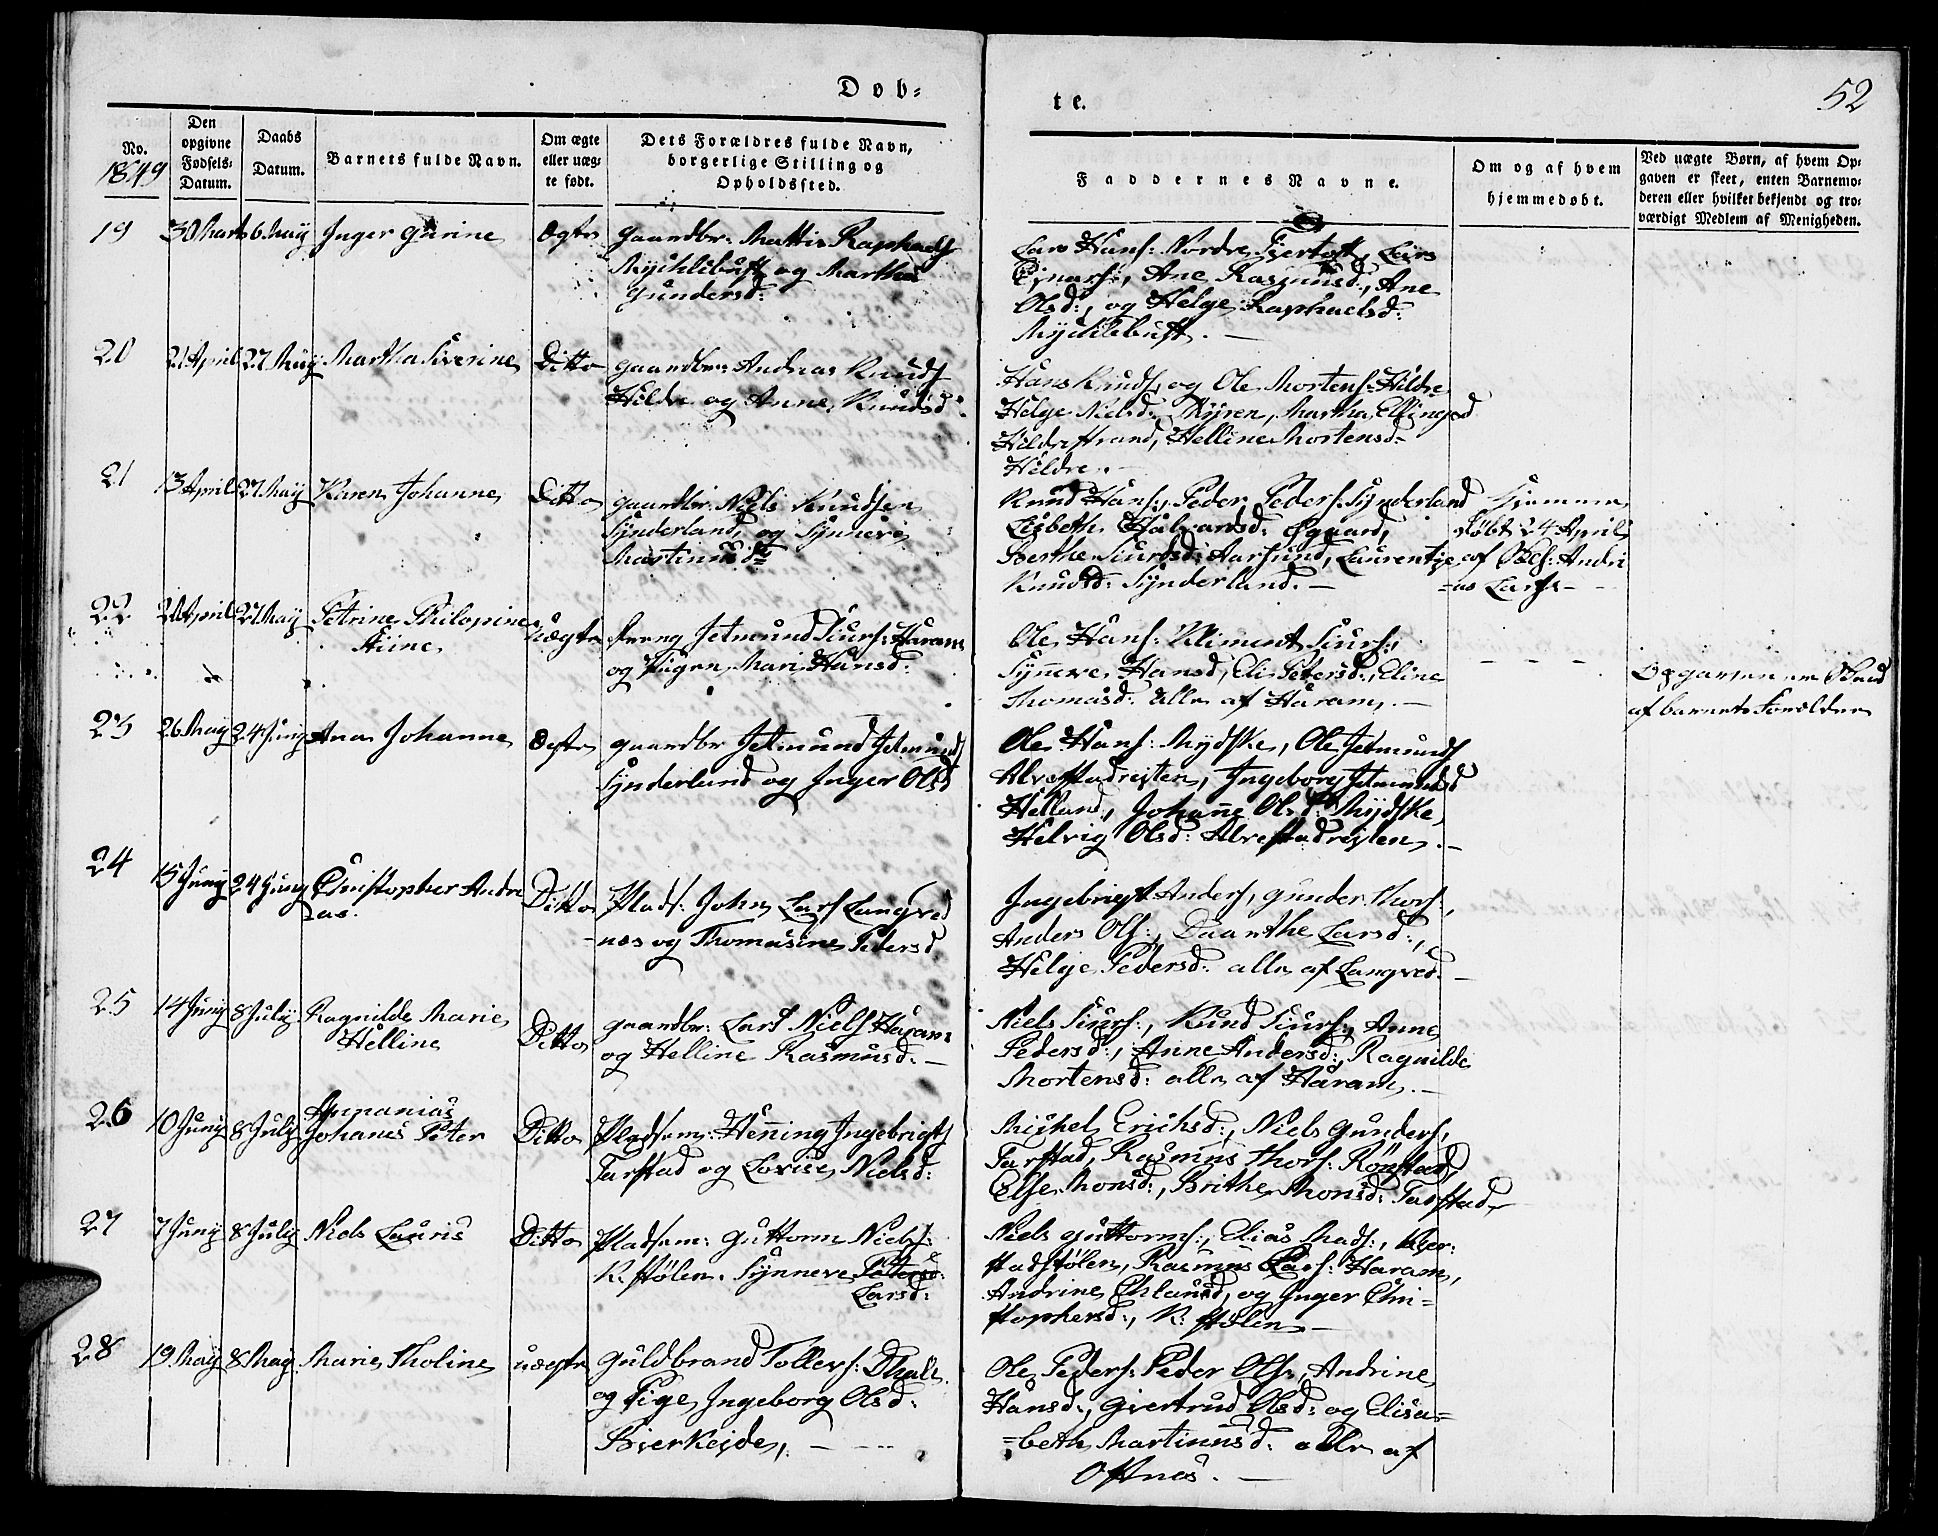 Døb-
te.
52
No.
1849
Den
opgivne
Fødsels-
Datum.
Daabs
Datum.
Barnets fulde Navn.
Om ægte
eller uæg-
te født.
Dets Forældres fulde Navn,
borgerlige Stilling og
Opholdssted.
Faddernes Navne.
Om og af hvem
hjemmedøbt.
Ved uægte Børn, af hvem Op-
gaven er skeet, enten Barnemo-
deren eller hvilket bekjendt og tro-
værdigt Medlem af Menigheden.
19 30 Marts 6 May Inger Gurine Ægte Gaardbr: Mattis Raphaels
Mychlebust og Martha
Gundersd:
Lars Hans: Nordre Fiertoft, Lars
Ejnars:, Ane Rasmusd:, Ane
Olsd:, og Helge Raphaelsd:
Mychlebust. —
20 21 April 27 May Martha Siverine Ditto Gaardbr: Andreas Knuds
Hildre og Anne Knudsd:
Hans Knuds og Ole Mortens: Hildre
Helge Nielsd: Myren, Martha Ellingsd
Hildrestrand, Helline Mortensd-
Hildre. -
21 13 April 27 May Karen Johanne Ditto Gaardbr. Niels Knudsen
Synderland, og Synneve
Martinusd:
Knud Hans:, Peder Peders: Synderland
Lisbeth Halvardsd: Øgaard,
Berthe Siurdsd: Aarsund, Laurentze
Knudsd: Synderland. —
Hjemme
døbt 24 April
af Bels: Andre
=as Lars —
22 21 April 27 May Petrine Philopine
Stine
Uægte Dreng Jetmund Siurs: Haram
og Pigen Mari Hansd:
Ole Hans: Kliment Siurs:,
Synneve Hansd, Eli Petersd:, Eline
Thomasd: alle af Haram. —
— — —
Opgaven er skeed
af barnets Forældre
23 26 May 24 Juny Ana Johanne Ægte Gaardbr Jetmund Jetmunds
Synderland og Inger Olsd
Ole Hans: Mydske, Ole Jetmunds
Alvestadrejten, Ingeborg Jetmundsd
Helland, Johanne Olsd: Mydske,
Helvig Olsd: Alvestadrejten. —
24 15 Juny 24 Juny Christopher Andre
as.
Ditto Plads: John Lars Langved
-næs og Thomasine Pedersd
Ingebrigt Anders, Gunder Thors:,
Anders Ols:, Daarthe Larsd:,
Helge Pedersd: alle af Langved. —
25 14 Juny 8 July Ragnilde Marie
Helline
Ditto Gaardbr: Lars Niels Haram
og Helline Rasmusd: —
Niels Siurs:, Knud Siurs:, Anne
Pedersd:, Anne Andersd:, Ragnilde
Mortensd: alle af Haram. —
26 10 Juny 8 July
Johanes Peter Ditto Pladsem: Henning Ingebrigts
Farstad og Lovise Nielsd:
Michel Erichsd:, Niels Gunders,
Farstad, Rasmus Thors: Rønstad,
Else Monsd:, Brithe Monsd: Farstad.
27 7 Juny 8 July Niels Lauris Ditto Pladsem: Guttorm Niels:
K: stølen. Synneve Petersd:
Larsd:
Niels Guttorms:, Elias Mads:, Kjer:
stadstølen, Rasmus Lars: Haram,
Andrine og Inger Chri=
stophersd:, K: stølen —
28 19 May 8 May Marie Tholine uægte Guldbrand Tollefs: Dhale
og Pige Ingeborg Olsd:
Bierkejde, —
Ole Peders: Peder Ols:, Andrine
Hansd:, Giertrud Olsd: og Elisa=
=beth Martinusd: alle af
Oftnes. —